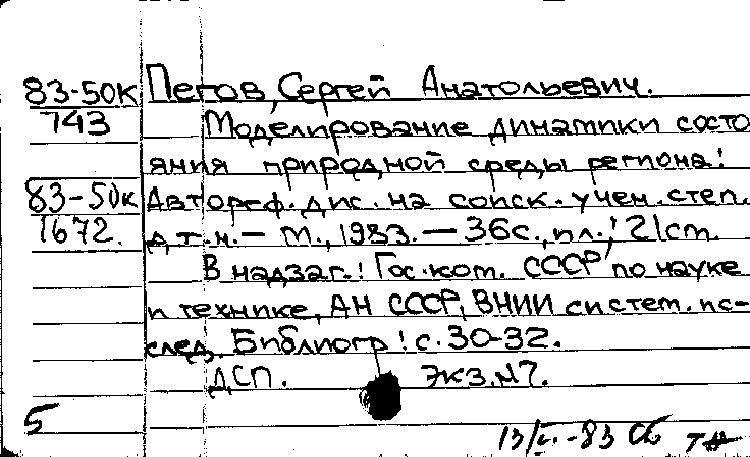 83-50к Пегов, Сергей Анатольевич.
743 Моделирование динамики состо
яния природной среды региона:
83-50к Автореф. дис. на соиск. учен. степ.
1672. д.т.н. — М., 1983. — 36с., ил.; 21см.
В надзаг.: Гос. ком. СССР по науке
и технике, АН СССР, ВНИИ систем. ис-
след. Библиогр: с. 30-32.
ДСП. Экз. №7.
5
13/ -83